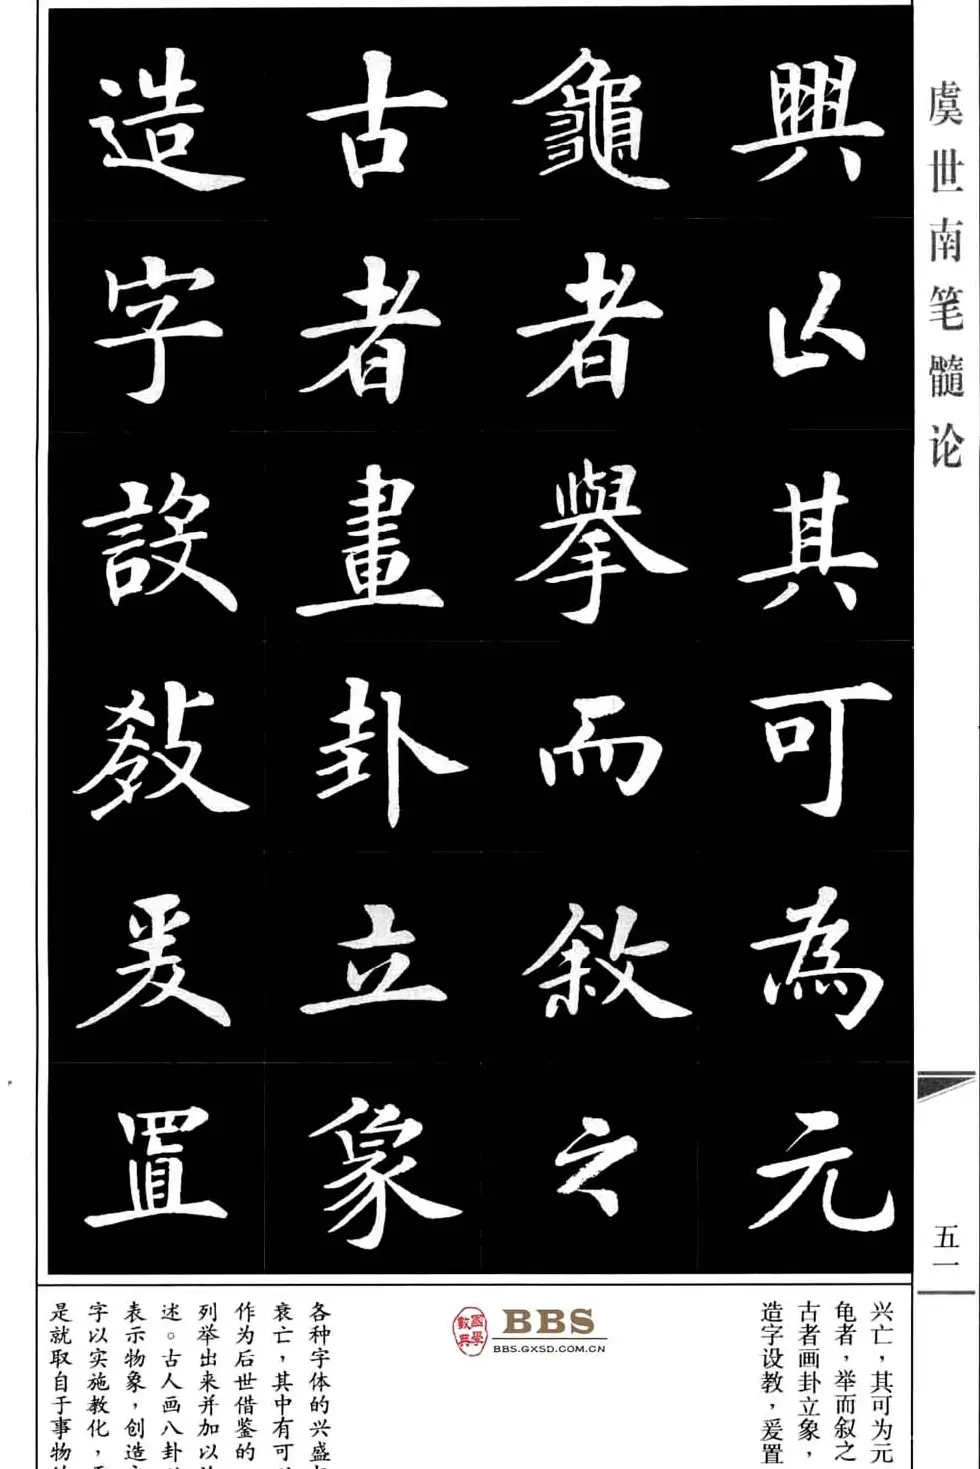 虞世南笔髓论
五一
興亡其可為元
龜者舉而敘之
古者畫卦立象
造字設教爰置
兴亡，其可为元
龟者，举而叙之
古者画卦立象，
造字设教，爰置
BBS
BBS.GXSD.COM.CN
國學數典
各种字体的兴盛
衰亡，其中有可
作为后世借鉴的
列举出来并加以
述。古人画八卦
表示物象，创造
字以实施教化，
是就取自于事物